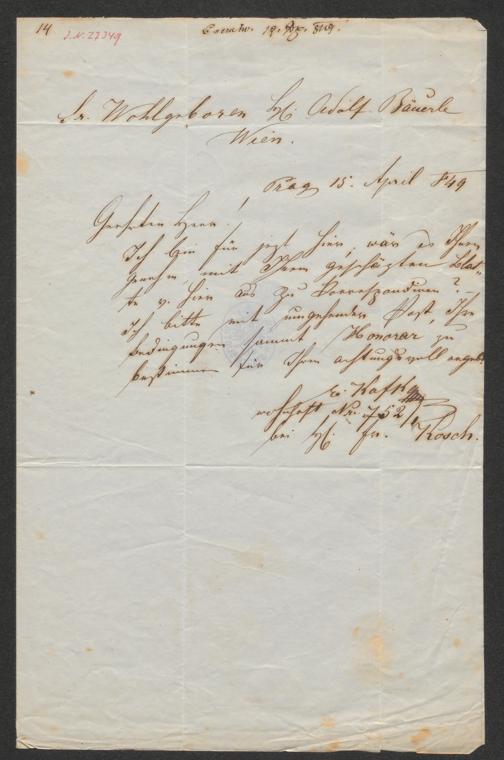 14
J.N. 27349
18. 849.
Sr. Wohlgeboren H. Adolf Bäuerle
Wien.
Prag 15. April 849
Geehrter Herr!
Ich bin für jezt hier, wär es Ihnen
genehm mit Ihrem geschäzten Blat-
te v. hier aus zu Korrespondiren? –
Ich bitte mit umgehender Post, Ihre
Bedingungen sammt Honorar zu
bestimmen für Ihren achtungsvoll ergeb.
Kafka
wohnhaft Nr. 752
bei H. Fr. Kosch.